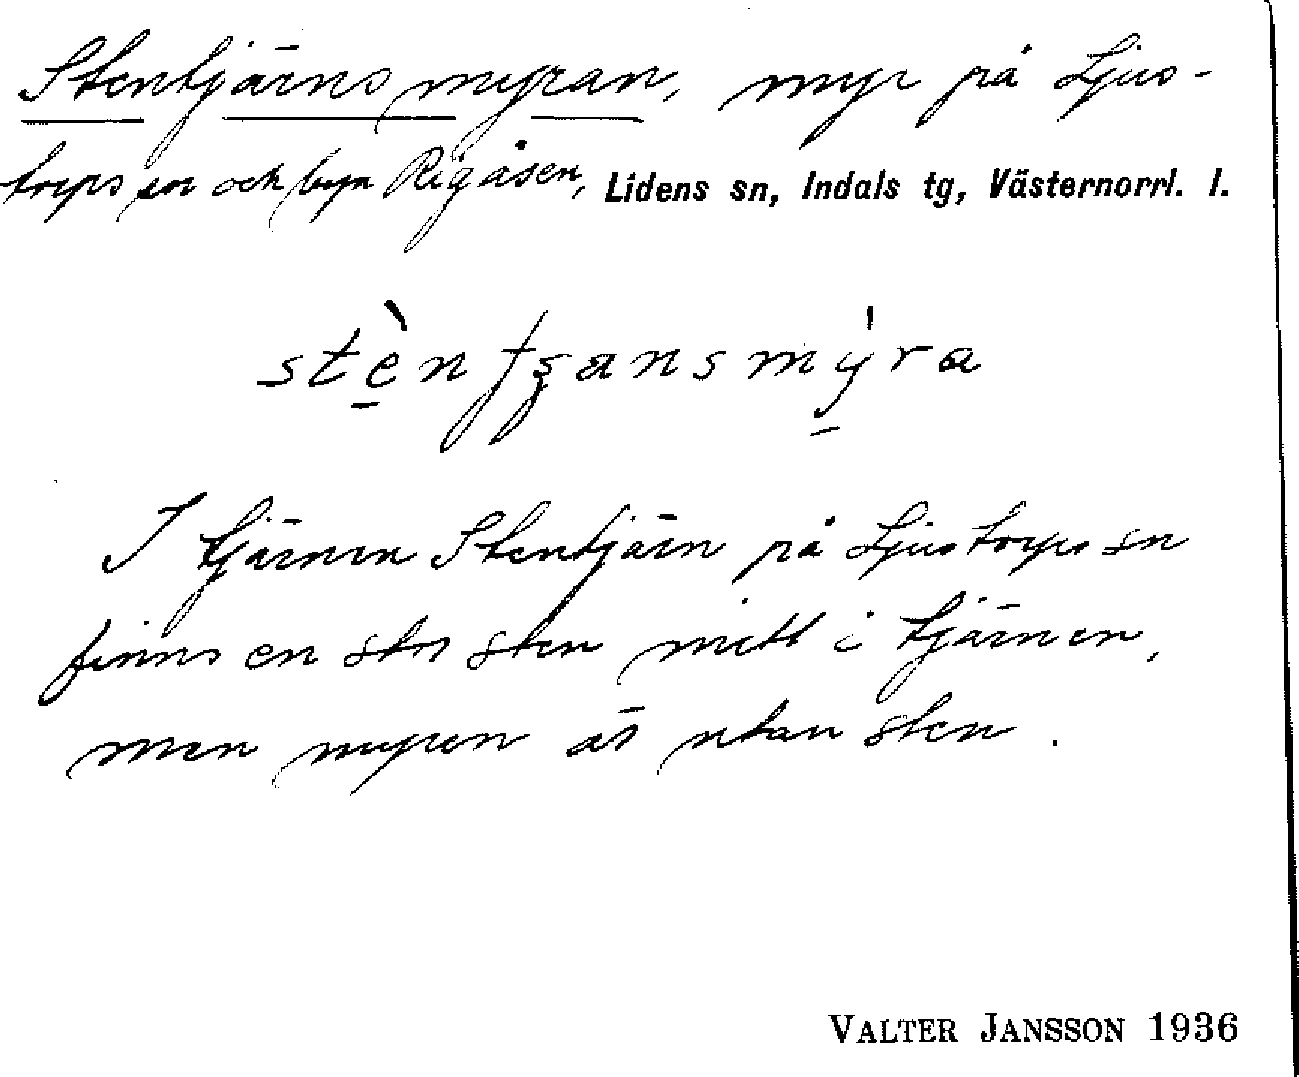 Stentjärnsmyran, myr på Ljus-
torps sn och byn Rigåsen, Lidens sn, Indals tg, Västernorrl. l.
I tjärnen Stentjärn på Ljustorps sn
finns en stor sten mitt i tjärnen,
men myren är utan sten.
VALTER JANSSON 1936